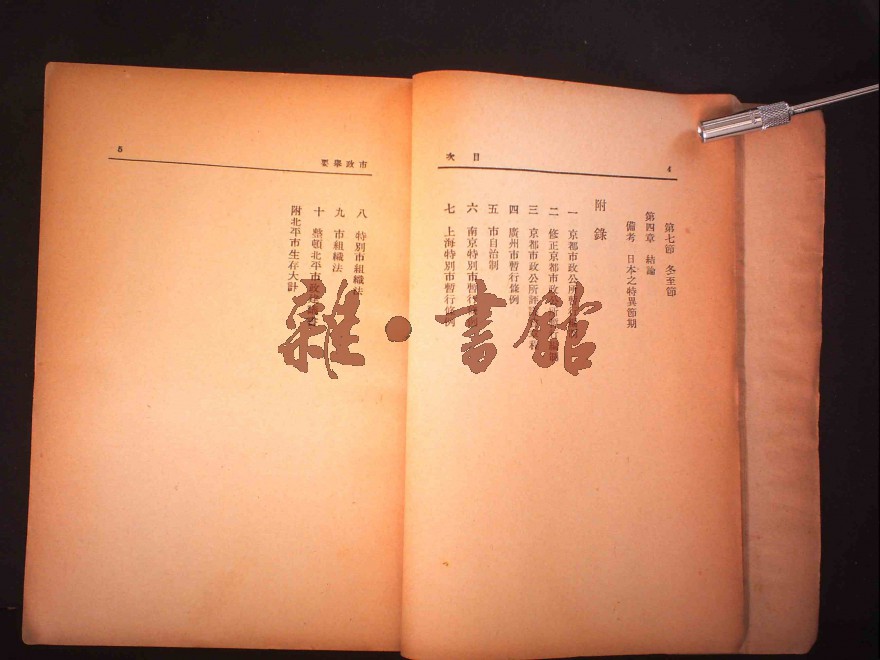 目次
4
第七節 冬至節
第四章 結論
備考 日本之特異節期
附錄
一 京都市政公所暫行
二 修正京都市政公所
三 京都市政公所
四 廣州市暫行條例
五 市自治制
六 南京特別市暫行條例
七 上海特別市暫行條例
市政舉要
5
八 特別市組織法
九 市組織法
十 整頓北平市政
附北平市生存大計
雜·書館